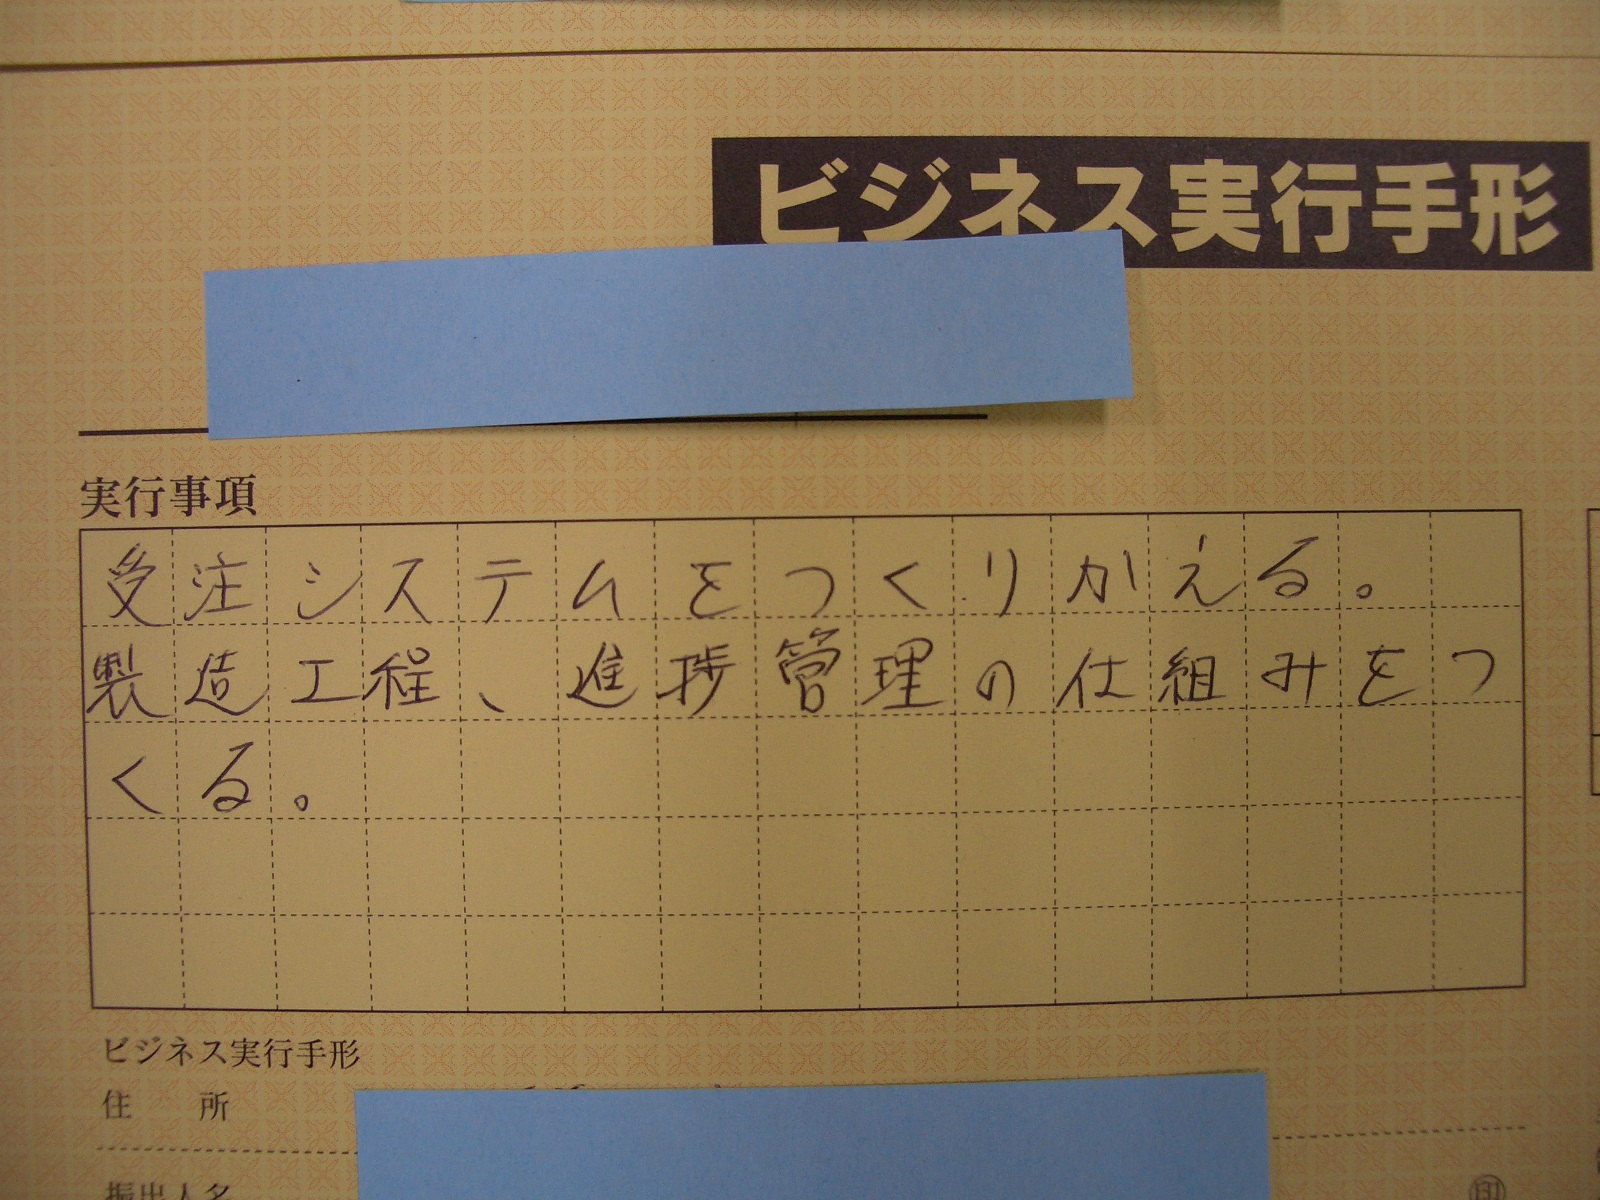 ビジネス実行手形
実行事項
受注システムをつくりかえる。
製造工程、進捗管理の仕組みをつ
くる。
ビジネス実行手形
住所
振出人名
印